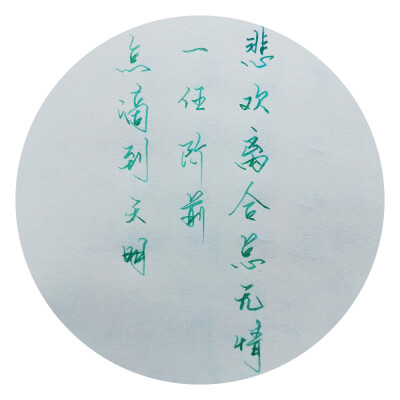 悲欢离合总无情
一任阶前
点滴到天明